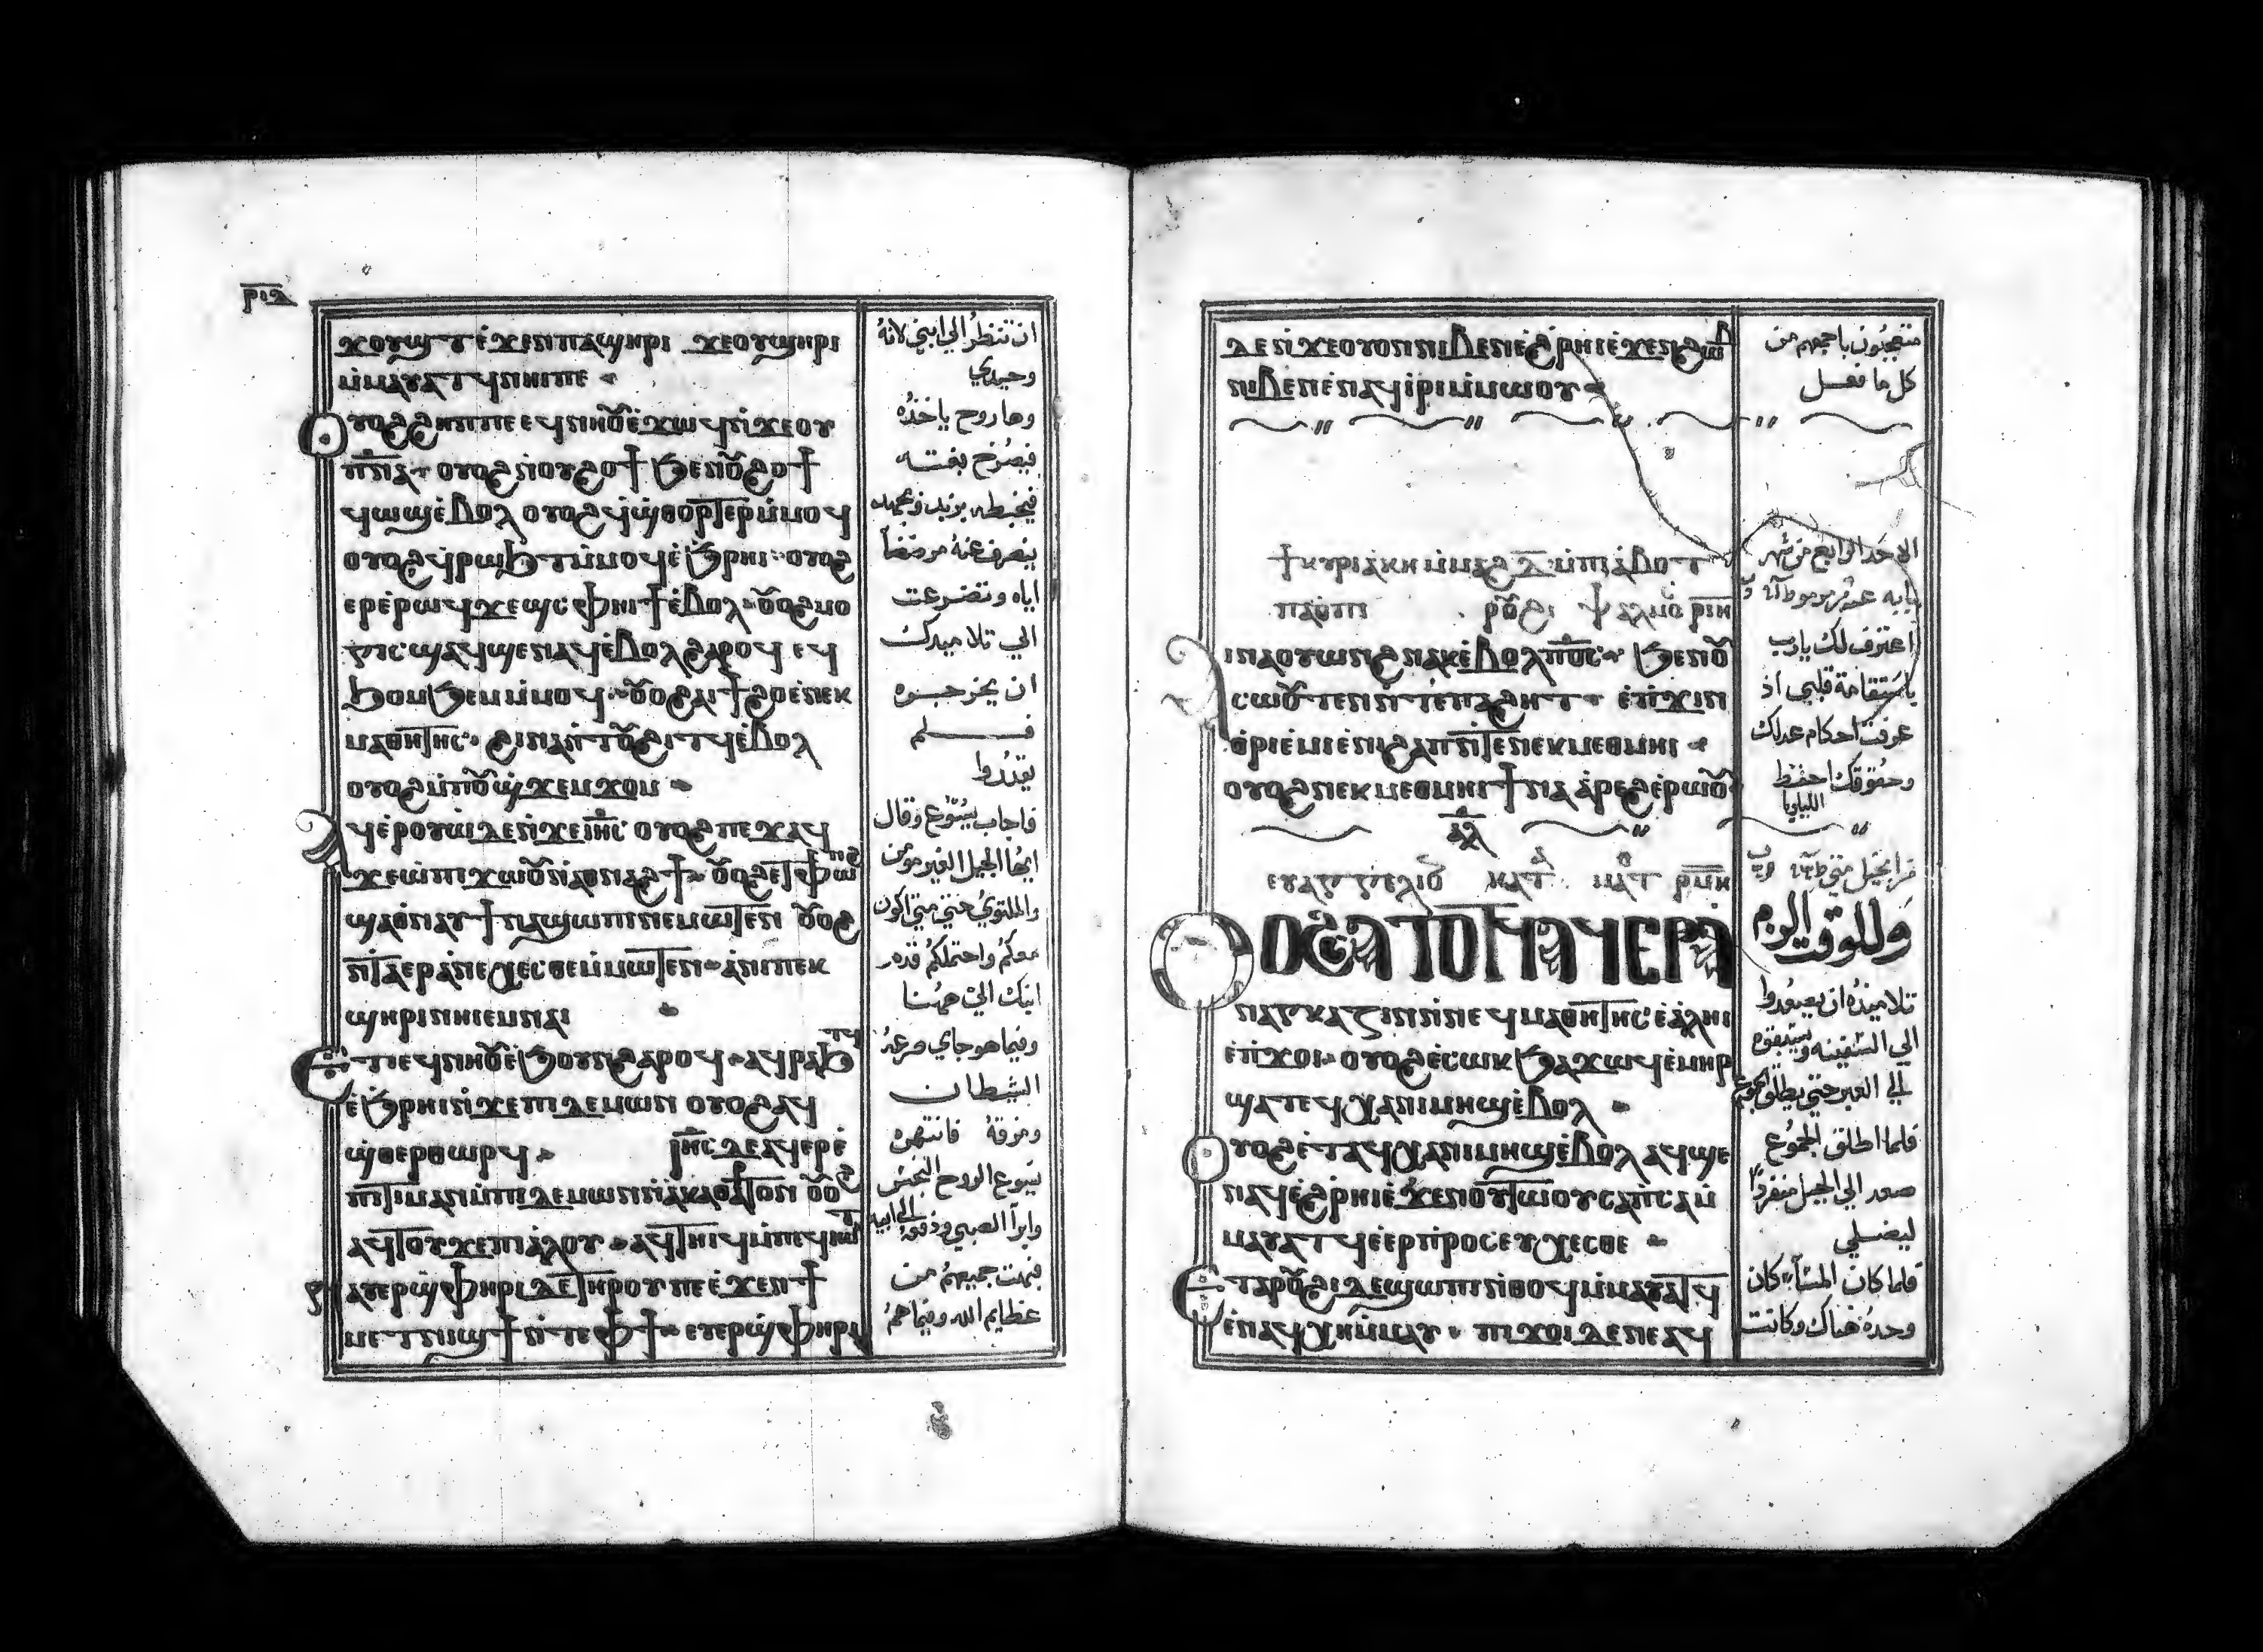 ⲣⲓⲇ
ϫⲟⲩϣⲧ ⲉ̀ϫⲉⲛ ⲡⲁϣⲏⲣⲓ ϫⲉ ⲟⲩϣⲏⲣⲓ
ⲙ̀ⲙⲁⲩⲁⲧϥ ⲛⲏⲓ ⲡⲉ
ⲟⲩⲟϩ ϩⲏⲡⲡⲉ ⲉϥⲛⲏⲟⲩ ⲉ̀ϫⲱϥ ⲛ̀ϫⲉ ⲟⲩ
ⲡ̅ⲛ̅ⲁ̅ ⲟⲩⲟϩ ⲛ̀ⲟⲩϩⲟϯ ϧⲉⲛ ⲟⲩϩⲟϯ
ϥⲱϣ ⲉ̀ⲃⲟⲗ ⲟⲩⲟϩ ϥ̀ϣⲑⲟⲣⲧⲉⲣ ⲙ̀ⲙⲟϥ
ⲟⲩⲟϩ ϥ̀ⲣⲱϧⲧ ⲙ̀ⲙⲟϥ ⲉ̀ϧⲣⲏⲓ ⲟⲩⲟϩ
ⲉⲣⲉ ⲣⲱϥ ϫⲉϣ ⲥⲫⲏⲓϯ ⲉ̀ⲃⲟⲗ ⲟⲩⲟϩ ⲙⲟ
ⲅⲓⲥ ϣⲁϥϣⲉⲛⲁϥ ⲉ̀ⲃⲟⲗ ϩⲁⲣⲟϥ ⲉϥ
ϧⲟⲙϧⲉⲙ ⲙ̀ⲙⲟϥ ⲟⲩⲟϩ ⲁⲓϯϩⲟ ⲉ̀ⲛⲉⲕ
ⲙⲁⲑⲏⲧⲏⲥ ϩⲓⲛⲁ ⲛ̀ⲧⲟⲩϩⲓⲧϥ ⲉ̀ⲃⲟⲗ
ⲟⲩⲟϩ ⲙ̀ⲡⲟⲩϣ̀ϫⲉⲙϫⲟⲙ
ⲁϥⲉⲣⲟⲩⲱ̀ ⲇⲉ ⲛ̀ϫⲉ ⲓⲏ̅ⲥ̅ ⲟⲩⲟϩ ⲡⲉϫⲁϥ
ϫⲉ ⲱ̀ ⲡⲓϫⲱⲟⲩ ⲛ̀ⲁⲑⲛⲁϩϯ ⲟⲩⲟϩ ⲉⲧⲫⲱⲛϩ
ϣⲁ ⲑⲛⲁⲩ ϯⲛⲁϣⲱⲡⲓ ⲛⲉⲙⲱⲧⲉⲛ ⲟⲩⲟϩ
ⲛ̀ⲧⲁⲉⲣⲁⲛⲉⲭⲉⲥⲑⲉ ⲙ̀ⲙⲱⲧⲉⲛ ⲁ̀ⲛⲓ ⲡⲉⲕ
ϣⲏⲣⲓ ⲛⲏⲓ ⲉ̀ⲙⲛⲁⲓ
ⲉⲧⲓ ⲉϥⲛⲏⲟⲩ ⲉ̀ϧⲟⲩⲛ ϩⲁⲣⲟϥ ⲁϥⲣⲁϧⲧϥ
ⲉ̀ϧⲣⲏⲓ ⲛ̀ϫⲉ ⲡⲓⲇⲉⲙⲱⲛ ⲟⲩⲟϩ ⲁϥ
ϣ̀ⲑⲉⲣⲑⲱⲣϥ ⲓⲏ̅ⲥ̅ ⲇⲉ ⲁϥⲉⲣⲉ̀
ⲡⲓⲧⲓⲙⲁⲛ ⲙ̀ⲡⲓⲇⲉⲙⲱⲛ ⲛ̀ⲁ̀ⲕⲁⲑⲁⲣⲧⲟⲛ ⲟⲩⲟϩ
ⲁϥⲧⲟⲩϫⲉ ⲡⲓⲁ̀ⲗⲟⲩ ⲁϥⲧⲏⲓϥ ⲙ̀ⲡⲉϥⲓⲱⲧ
ⲁⲩⲉⲣϣ̀ⲫⲏⲣⲓ ⲇⲉ ⲧⲏⲣⲟⲩ ⲡⲉ ⲉ̀ϫⲉⲛ ϯ
ⲙⲉⲧⲛⲓϣϯ ⲛ̀ⲧⲉ ⲫϯ ⲉⲩⲉⲣϣ̀ⲫⲏⲣⲓ
ان تنظر الي ابني لانه
وحيدي
وها روح ياخذه
فيصرخ بغتة
فيخبطه بزبد وبجهد
ينصرف عنه مرضضاً
اياه وتضرعت
الي تلاميدك
ان يخرجوه
فلم
يقدروا
فاجاب يسوع وقال
ايها الجيل الغير مومن
والملتوي حتي متي اكون
معكم واحتملكم قدم
ابنك الي ههنا
وفيما هو جاي صرعه
الشطان
ومزقه فانتهره
يسوع الروح النجس
وابرا الصبي ودفعه الي ابيه
فبهت جميعهم من
عظايم الله وفيما هم
ⲇⲉ ⲛ̀ϫⲉ ⲟⲩⲟⲛ ⲛⲓⲃⲉⲛ ⲉ̀ϩⲣⲏⲓ ⲉ̀ϫⲉⲛ ϩⲱⲃ
ⲛⲓⲃⲉⲛ ⲉ̀ⲛⲁϥⲓⲣⲓ ⲙ̀ⲙⲱⲟⲩ
ϯⲕⲩⲣⲓⲁⲕⲏ ⲙ̀ⲙⲁϩ ⲇ̅ ⲙ̀ⲡⲓⲁ̀ⲃⲟⲧ
ⲡⲁⲟ̀ⲡⲓ ⲣⲟⲩϩⲓ ⲯⲁⲗⲙⲟⲥ ⲣⲓⲏ
ϯⲛⲁⲟⲩⲱⲛϩ ⲛⲁⲕ ⲉ̀ⲃⲟⲗ ⲡ̅ⲟ̅ⲥ̅ ϧⲉⲛ ⲟⲩ
ⲥⲱⲟⲩⲧⲉⲛ ⲛ̀ⲧⲉ ⲡⲁϩⲏⲧ ⲉ̀ⲡ̀ϫⲓⲛ
ⲑⲣⲓⲉ̀ⲙⲓ ⲉ̀ⲛⲓϩⲁⲡ ⲛ̀ⲧⲉ ⲛⲉⲕⲙⲉⲑⲙⲏⲓ
ⲟⲩⲟϩ ⲛⲉⲕⲙⲉⲑⲙⲏⲓ ϯⲛⲁⲁ̀ⲣⲉϩ ⲉ̀ⲣⲱⲟⲩ
ⲁⲗ
ⲉⲩⲁⲅⲅⲉⲗⲓⲟⲛ ⲕⲁⲧⲁ ⲙⲁⲧ
ⲟⲩⲟϩ ⲥⲁⲧⲟⲧϥ ⲁϥⲉⲣⲁ
ⲛⲁⲅⲕⲁⲍⲓⲛ ⲛ̀ⲛⲉϥⲙⲁⲑⲏⲧⲏⲥ ⲉ̀ⲁ̀ⲗⲏⲓ
ⲉ̀ⲡ̀ϫⲟⲓ ⲟⲩⲟϩ ⲉ̀ⲥⲱⲕ ϧⲁϫⲱϥ ⲉ̀ⲙⲏⲣ
ϣⲁⲧⲉϥⲭⲁ ⲛⲓⲙⲏϣ ⲉ̀ⲃⲟⲗ
ⲟⲩⲟϩ ⲉ̀ⲧⲁϥⲭⲁ ⲛⲓⲙⲏϣ ⲉ̀ⲃⲟⲗ ⲁϥϣⲉ
ⲛⲁϥ ⲉ̀ϩ̀ⲣⲏⲓ ⲉ̀ϫⲉⲛ ⲟⲩⲧⲱⲟⲩ ⲥⲁⲡⲥⲁ ⲙ̀
ⲙⲁⲩⲁⲧϥ ⲉ̀ⲉⲣⲡⲣⲟⲥⲉⲩⲭⲉⲥⲑⲉ
ⲉⲧⲁ ⲣⲟⲩϩⲓ ⲇⲉ ϣⲱⲡⲓ ⲛ̀ⲑⲟϥ ⲙ̀ⲙⲁⲩⲁⲧϥ
ⲉ̀ⲛⲁϥⲭⲏ ⲙ̀ⲙⲁⲩ ⲡⲓϫⲟⲓ ⲇⲉ ⲛⲉⲁϥ
متعجبون باجمعهم من
كل ما فعل
الاحد الرابع من شهر
بابه عشية مزمور
اعترف لك يارب
باستقامة قلبي اذ
عرفت احكام عدلك
وحقوقك احفظ
الليلويا
من انجيل متي
وللوقت الزم
تلاميذه ان يصعدوا
الي السفينه ويسبقوه
الي العبر حتي يطلق الجموع
فلما اطلق الجموع
صعد الي الجبل منفرداً
ليصلي
فلما كان المسآء كان
وحده هناك وكانت